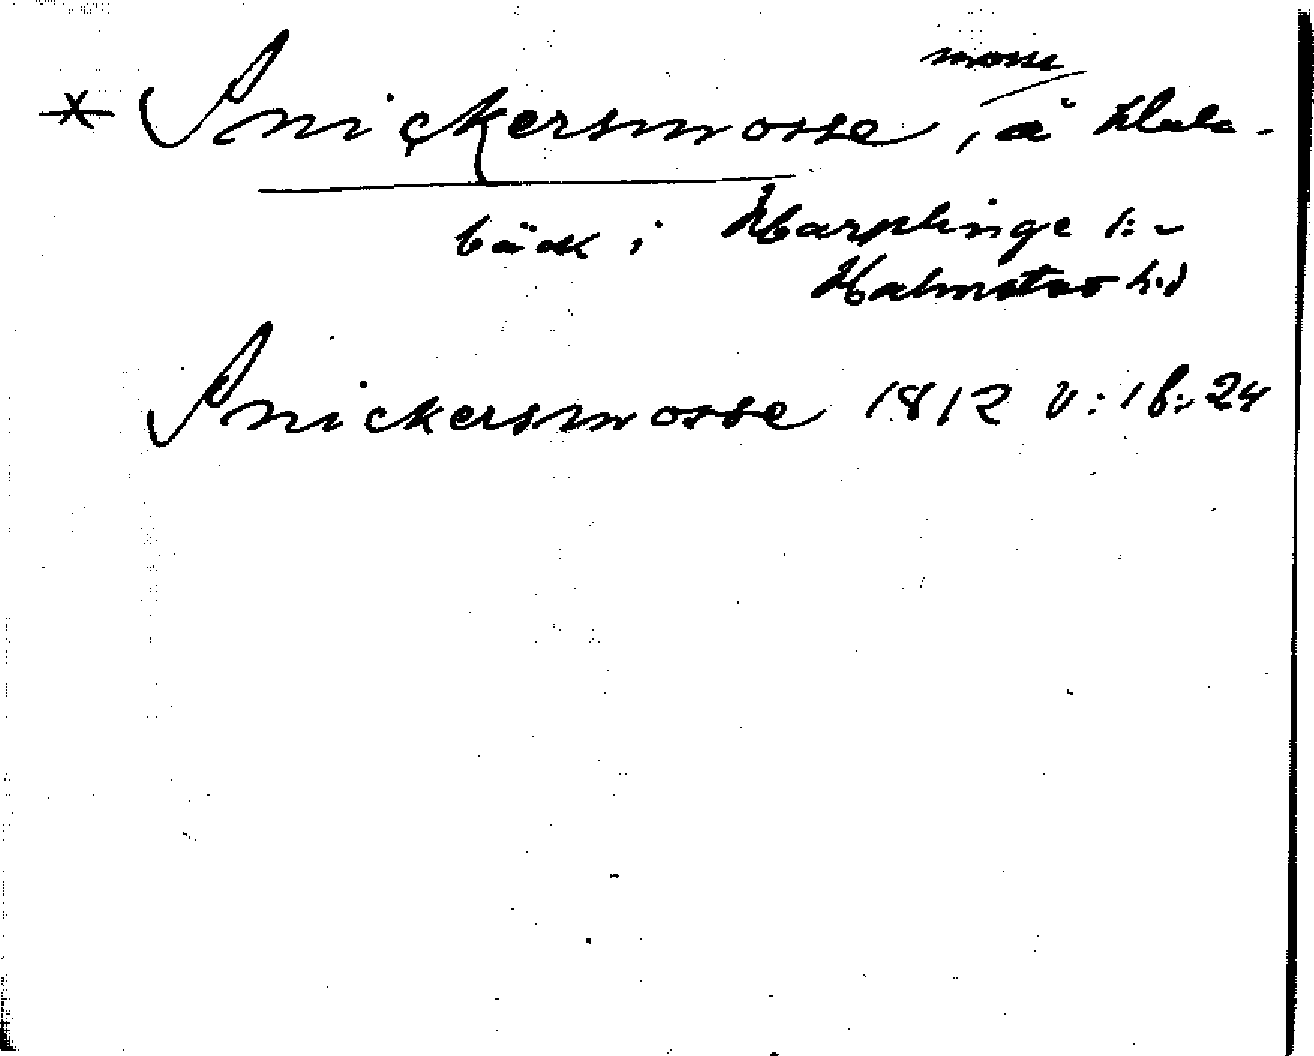 mosse
* Snickersmosse, å Hule-
bäck i Harplinge s:n
Halmstad h:d
Snickersmosse 1812 U: 16: 24